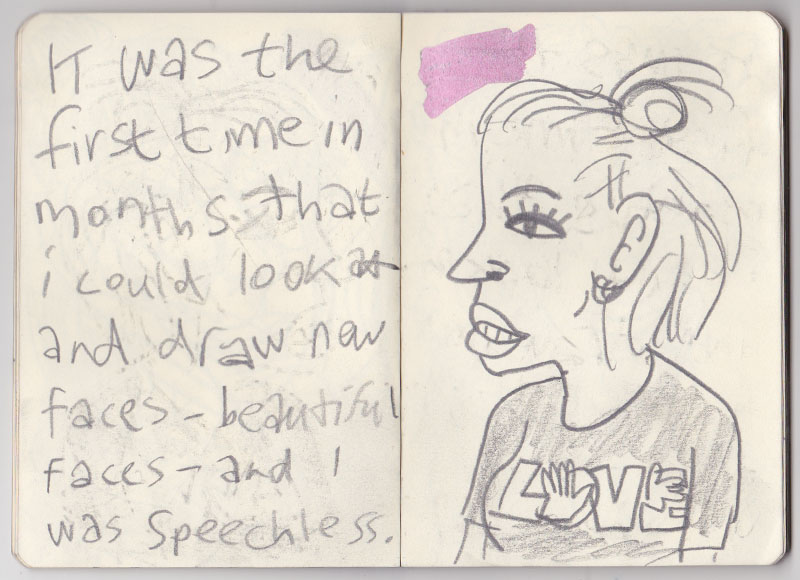 IT was the
first time in
months that
i could look at
and draw new
faces - beautiful
faces - and I
was speechless.
LOVE